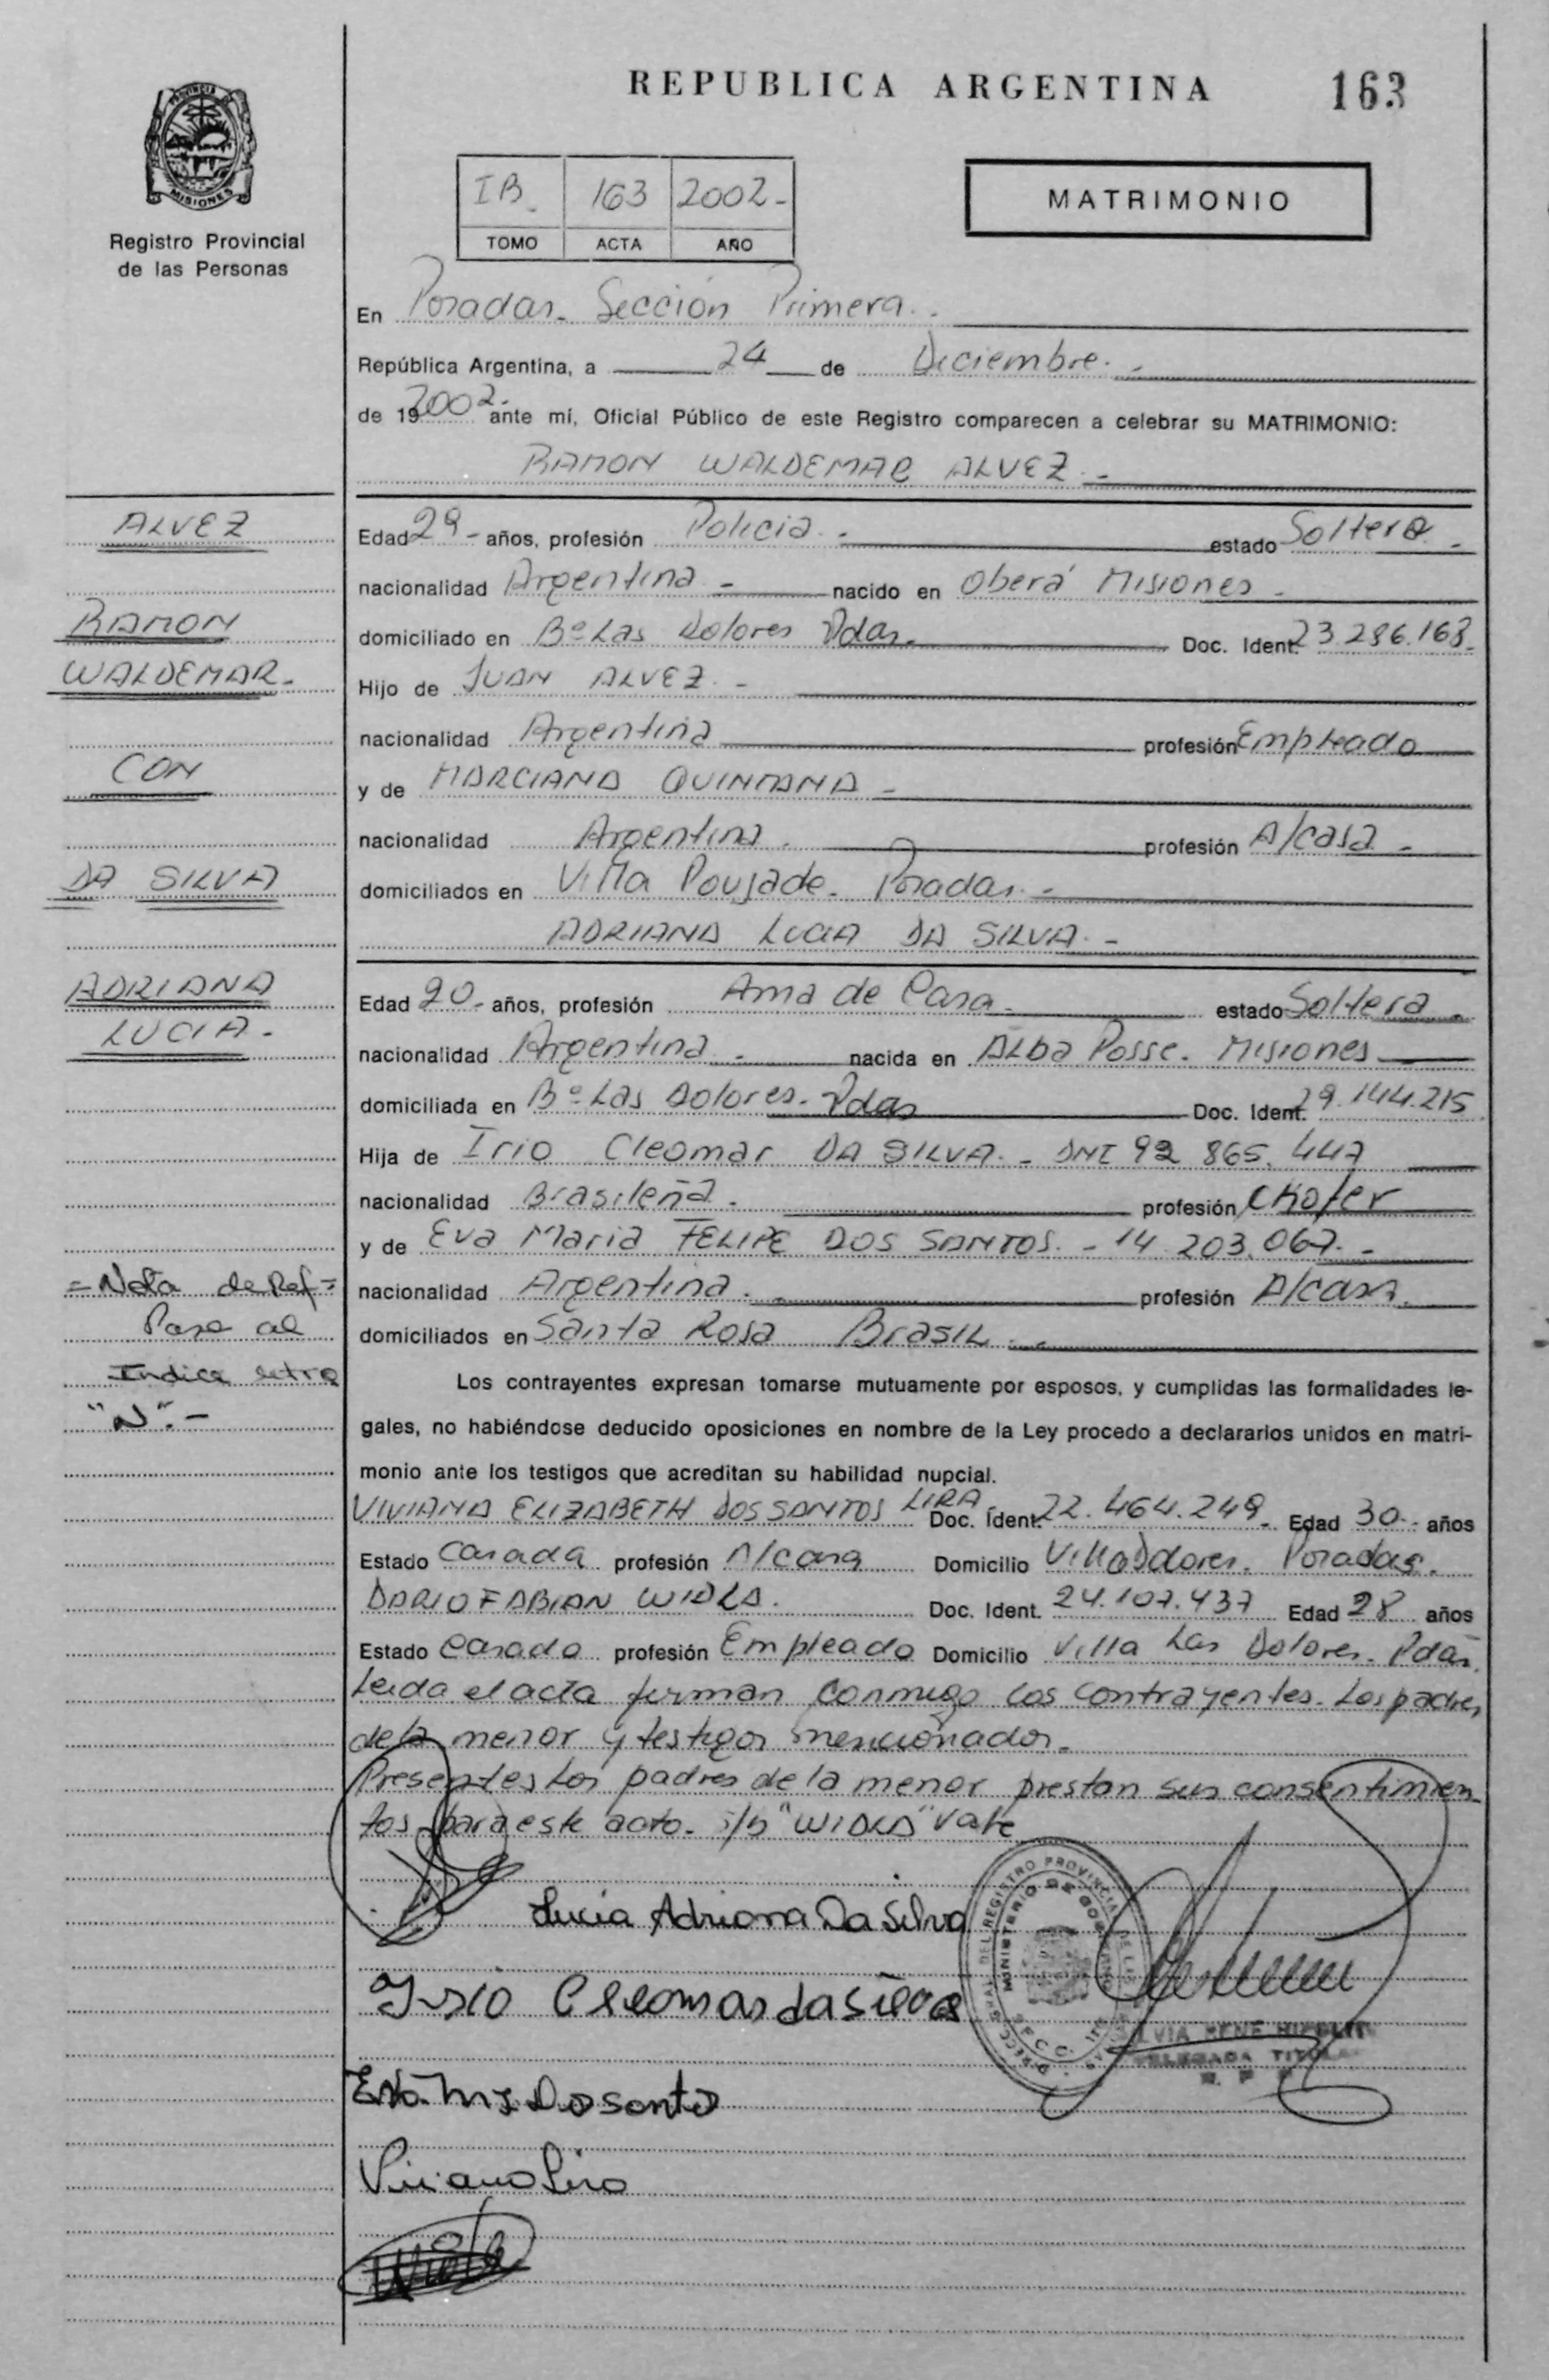 REPUBLICA ARGENTINA
163
PROVINCIA DE MISIONES
Registro Provincial
de las Personas
IB. 163 2002-
TOMO ACTA AÑO
MATRIMONIO
En Posadas. Sección Primera.-
República Argentina, a 24 de Diciembre.-
de 19 2002- ante mí, Oficial Público de este Registro comparecen a celebrar su MATRIMONIO:
RAMON WALDEMAR ALVEZ.-
ALVEZ
RAMON
WALDEMAR-
CON
DA SILVA
ADRIANA
LUCIA.-
Edad 29- años, profesión Policia.- estado Soltero.-
nacionalidad Argentina- nacido en Oberá Misiones-
domiciliado en Bº Las Dolores Pdas. Doc. Ident. 23.286.168-
Hijo de JUAN ALVEZ.-
nacionalidad Argentina profesión Empleado
y de MARCIANA QUINTANA-
nacionalidad Argentina. profesión A/casa-
domiciliados en Villa Poujade. Posadas.-
ADRIANA LUCIA DA SILVA.-
Edad 20- años, profesión Ama de Casa- estado Soltera-
nacionalidad Argentina.- nacida en ALba Posse. Misiones
domiciliada en Bº Las Dolores. Pdas Doc. Ident. 29.144.215
Hija de Irio Cleomar DA SILVA.- DNI 92 865.447
nacionalidad Brasileña. profesión Chofer
y de Eva Maria FELIPE DOS SANTOS.-14.203.067.-
nacionalidad Argentina.- profesión A/casa.
domiciliados en Santa Rosa BrasiL.-
=Nota de Ref=
Pase al
Indice letra
"N".-
Los contrayentes expresan tomarse mutuamente por esposos, y cumplidas las formalidades le-
gales, no habiéndose deducido oposiciones en nombre de la Ley procedo a declararlos unidos en matri-
monio ante los testigos que acreditan su habilidad nupcial.
VIVIANA ELIZABETH DOS SANTOS LIRA Doc. Ident. 22.464.249- Edad 30- años
Estado Casada profesión A/casa Domicilio Villa Dolores. Posadas.
DARIO FABIAN WIDLA. Doc. Ident. 24.107.437 Edad 28 años
Estado Casado profesión Empleado Domicilio Villa Las Dolores. Pdas.
Leida el acta firman conmigo los contrayentes. Los padres
de la menor y testigos mencionados.-
Presentes los padres de la menor prestan sus consentimien
tos para este acto. s/b "WIDLA" Vale
Lucia Adriana Da Silva
Irio Cleomar da Silva
Eva Ma Dosanto
Viviana Lira
DIRECCION GRAL. DEL REGISTRO PROVINCIAL DE LAS
MINISTERIO DE GOBIERNO
SILVIA RENE HIPOLIT
DELEGADA TITULAR
R. P. P.